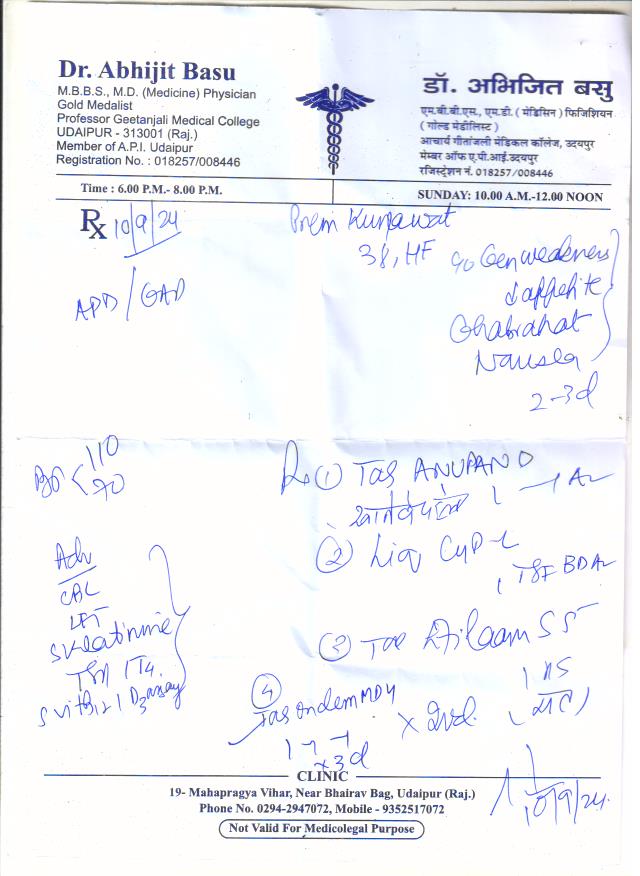 Dr. Abhijit Basu
M.B.B.S., M.D. (Medicine) Physician
Gold Medalist
Professor Geetanjali Medical College
UDAIPUR - 313001 (Raj.)
Member of A.P.I. Udaipur
Registration No. : 018257/008446
डॉ. अभिजित बसु
एम.बी.बी.एस., एम.डी. ( मेडिसिन ) फिजिशियन
( गोल्ड मेडीलिस्ट )
आचार्य गीतांजली मेडिकल कॉलेज, उदयपुर
मेम्बर ऑफ ए.पी.आई.उदयपुर
रजिस्ट्रेशन नं. 018257/008446
Time : 6.00 P.M.- 8.00 P.M.
SUNDAY: 10.00 A.M.-12.00 NOON
Rx 10/9/24
Prem Kumawat
38, HF
c/o Gen weakness
↓appetite
Ghabrahat
Nausea
2-3d
APD/GAD
BP < 110
70
Adv
CBC
LFT
S Creatinine
TSH
S vit B12 | D3 assay
Rx ① Tab ANUPAN D
② Liq CYP-L
1 TSF BD
③ Tab
1 HS
④
Tab Ondem MD4
1-1-1
x 3d
10/9/24
CLINIC
19- Mahapragya Vihar, Near Bhairav Bag, Udaipur (Raj.)
Phone No. 0294-2947072, Mobile - 9352517072
Not Valid For Medicolegal Purpose